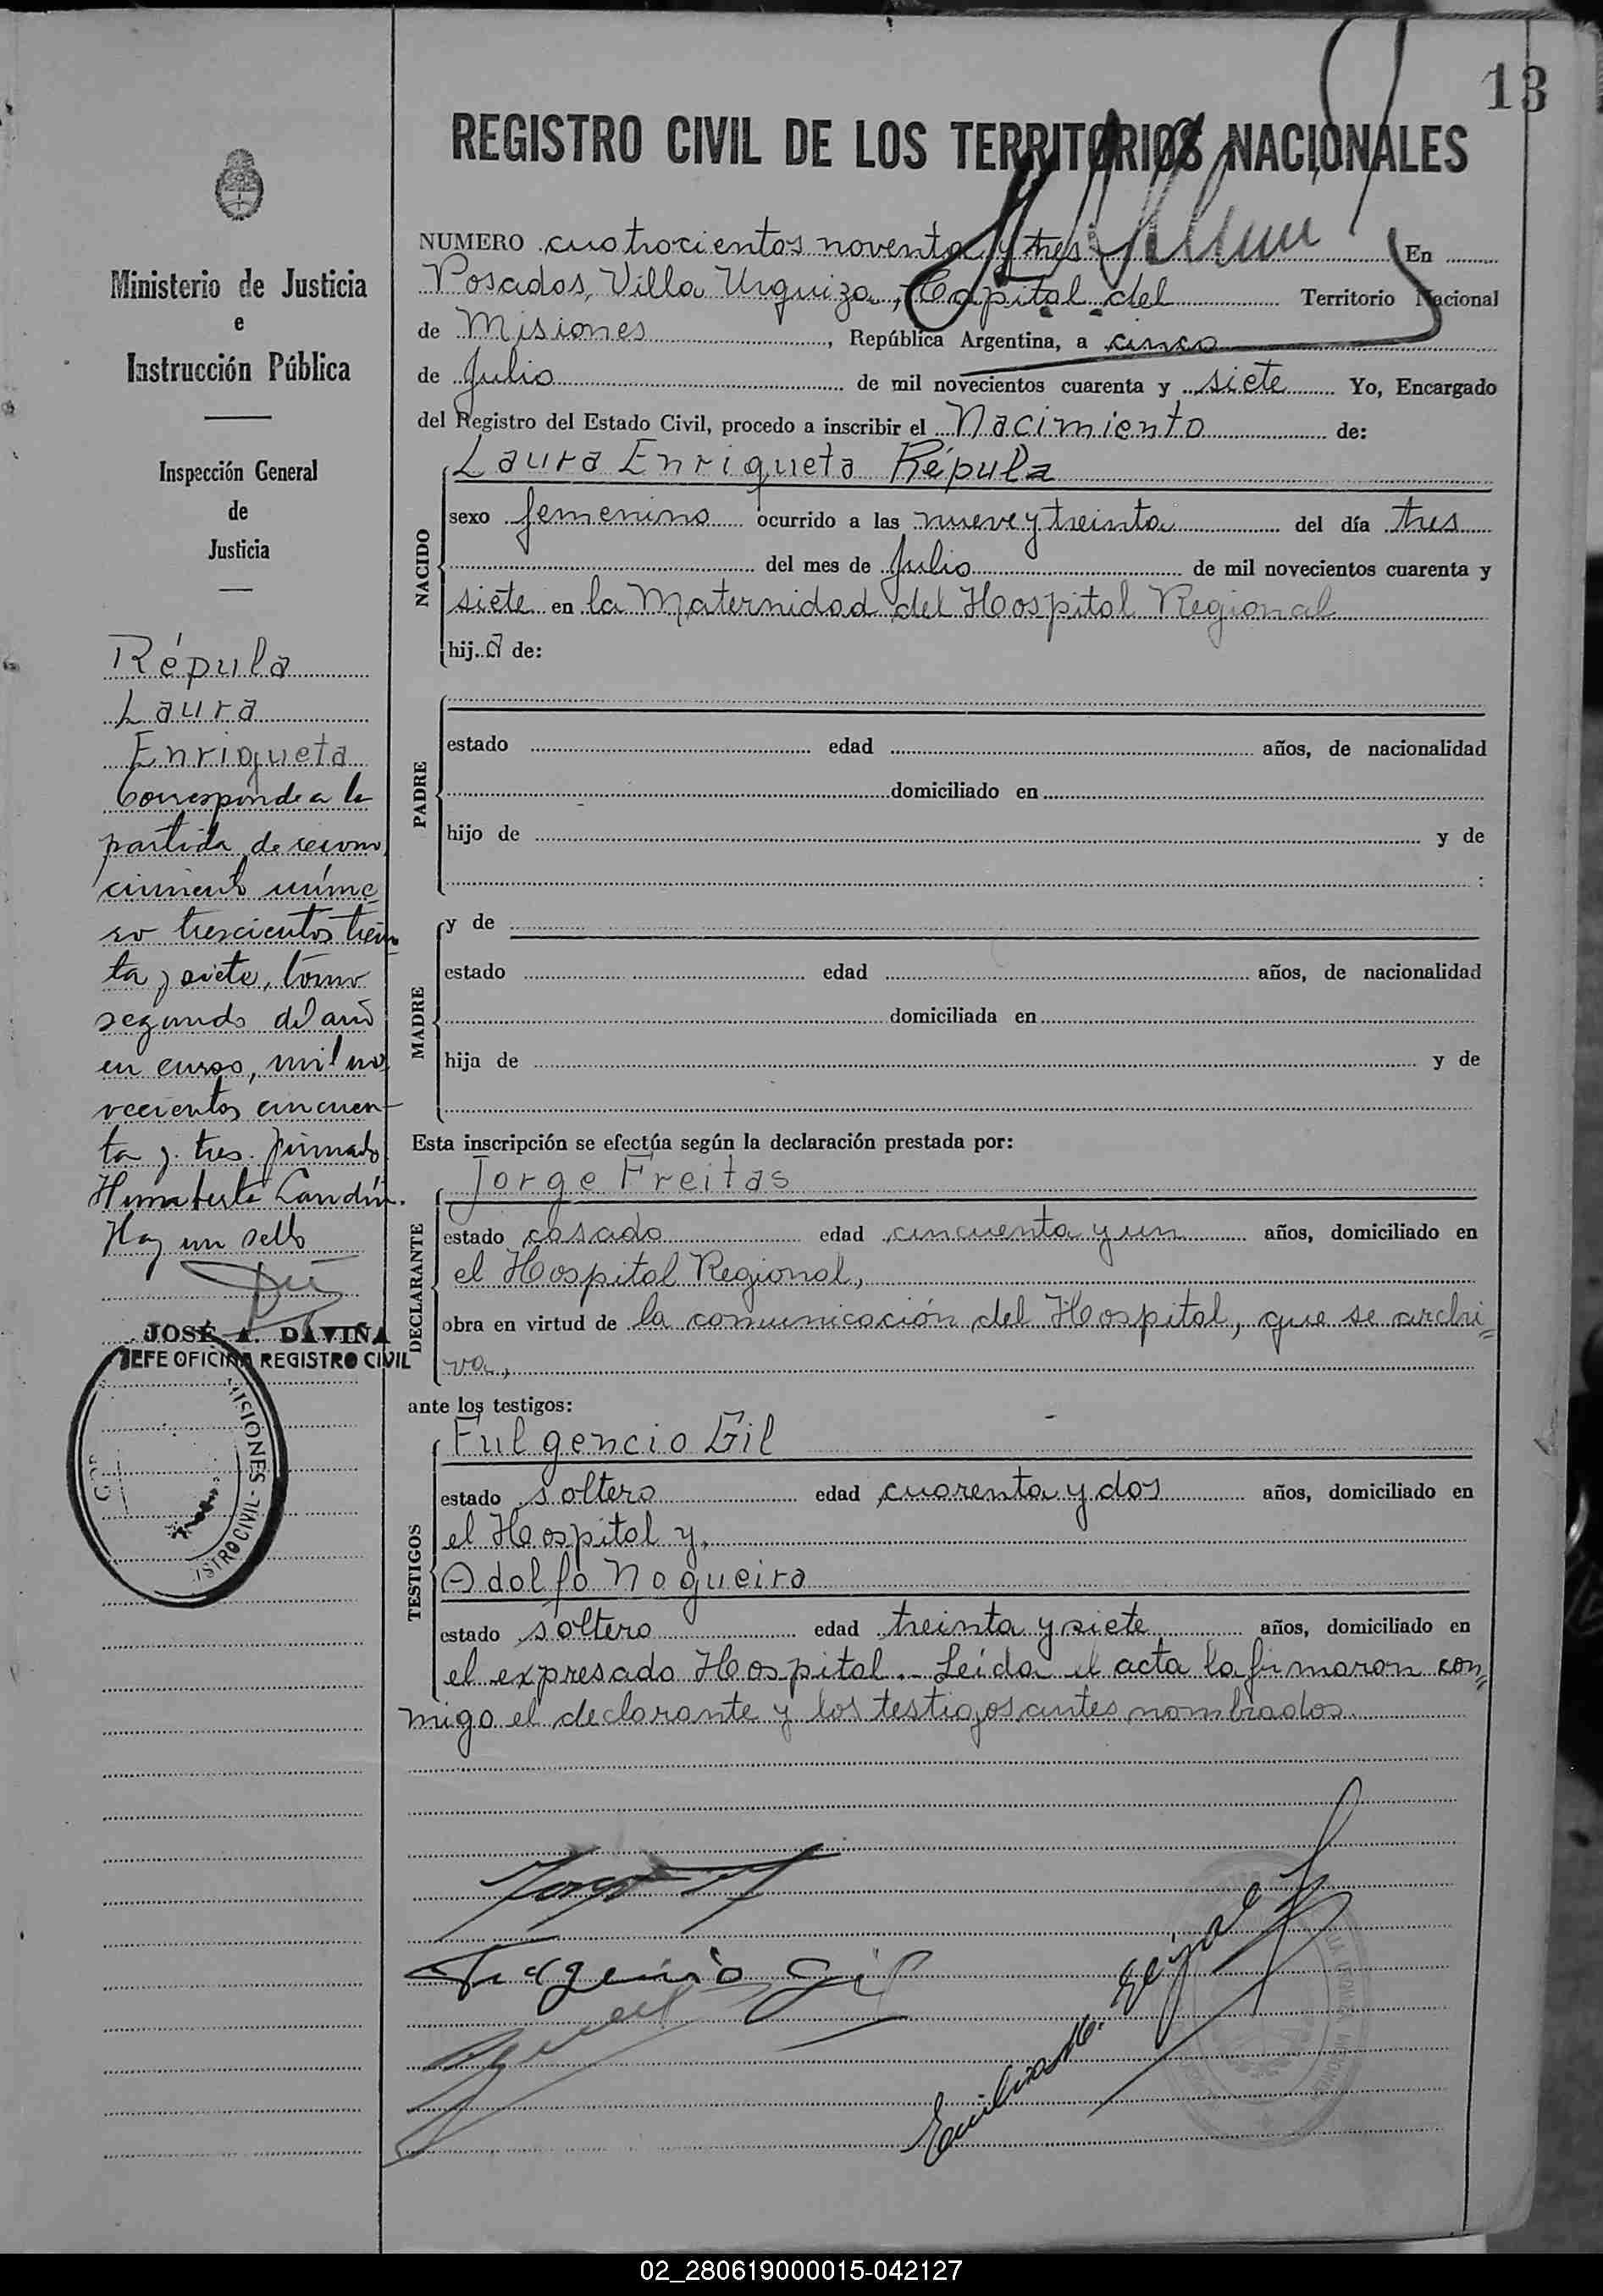 13
REGISTRO CIVIL DE LOS TERRITORIOS NACIONALES
Ministerio de Justicia
e
Instrucción Pública
Inspección General
de
Justicia
Répula
Laura
Enriqueta
Corresponde a la
partida de recono
cimiento núme
ro trescientos trein
ta y siete, tomo
segundo del año
en curso, mil no
vecientos cincuen
ta y tres. firmado
Landín.
Hay un sello
JOSÉ A. DAVIÑA
JEFE OFICINA REGISTRO CIVIL
MISIONES - ISTRO CIVIL
NUMERO cuatrocientos noventa y tres En
Posadas, Villa Urquiza, Capital del Territorio Nacional
de Misiones, República Argentina, a cinco
de Julio de mil novecientos cuarenta y siete Yo, Encargado
del Registro del Estado Civil, procedo a inscribir el Nacimiento de:
NACIDO
Laura Enriqueta Répula
sexo femenino ocurrido a las nueve y treinta del día tres
del mes de Julio de mil novecientos cuarenta y
siete en la Maternidad del Hospital Regional
hija de:
PADRE
estado edad años, de nacionalidad
domiciliado en
hijo de y de
:
MADRE
y de
estado edad años, de nacionalidad
domiciliada en
hija de y de
Esta inscripción se efectúa según la declaración prestada por:
DECLARANTE
Jorge Freitas
estado casado edad cincuenta y un años, domiciliado en
el Hospital Regional,
obra en virtud de la comunicación del Hospital, que se archi=
va,
ante los testigos:
TESTIGOS
Fulgencio Gil
estado soltero edad cuarenta y dos años, domiciliado en
el Hospital y,
Adolfo Nogueira
estado soltero edad treinta y siete años, domiciliado en
el expresado Hospital.- Leída el acta la firmaron con=
migo el declarante y los testigos antes nombrados.
Fulgencio Gil
02_280619000015-042127